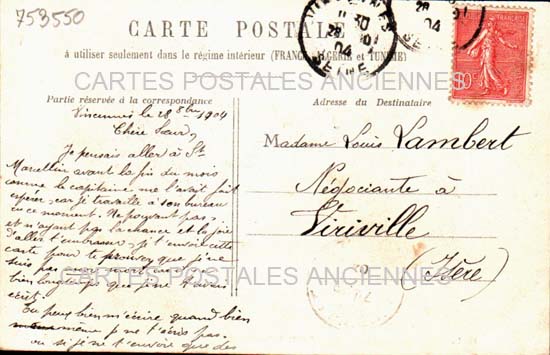 753550
CARTE POSTALE
à utiliser seulement dans le régime intérieur (FRANCE, ALGÉRIE et TUNISIE)
CARTES POSTALES ANCIENNES
Partie réservée à la correspondance
Adresse du Destinataire
Vincennes le 28 8bre 1904
Chère Sœur,
Je pensais aller à St
Marcellin avant la fin du mois
comme le capitaine me l'avait fait
espérer, car je travaille à son bureau
en ce moment. Ne pouvant pas
et n'ayant pas la chance et la joie
d'aller t'embrasser, je t'envoie cette
carte pour te prouver que je ne
suis pas
bien longtemps que je ne t'avais
écrit.
Tu peux bien m'écrire quand bien
même je ne t'écris pas,
ou si je ne t'envoie que des
Madame Louis Lambert
Négociante à
Viriville
(Isère)
CARTES POSTALES ANCIENNES